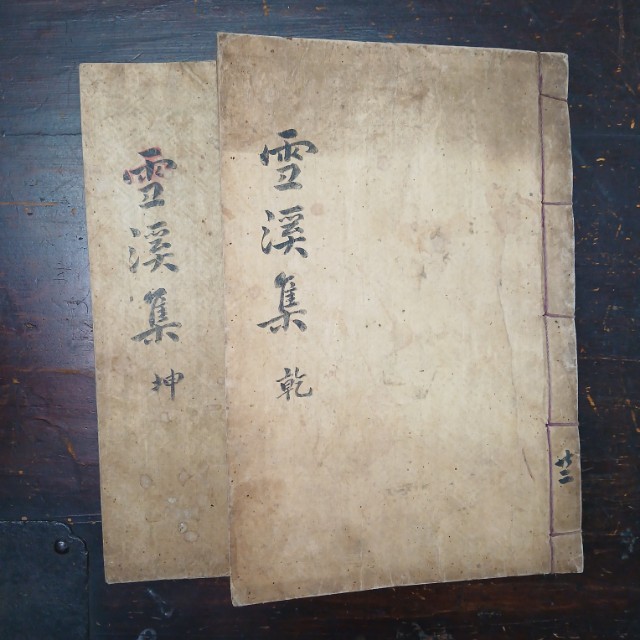 雪溪集
乾
廿二
雪溪集
坤